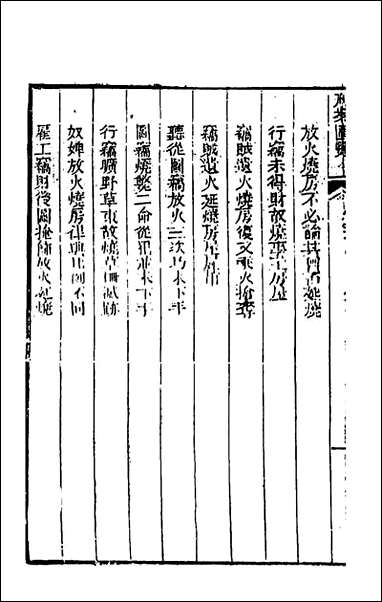 放火燒房不必論其曾否延燒
行竊未得財故燒事主房屋
竊賊遺火燒房復又乘火搶奪
竊賊遺火延燒房屋
聽從圖竊放火三次均未下手
圖竊燒斃二命從犯並未下手
行竊曠野草束故燒草冊滅跡
奴婢放火燒房律與例不同
雇工竊財後圖掩飾放火延燒